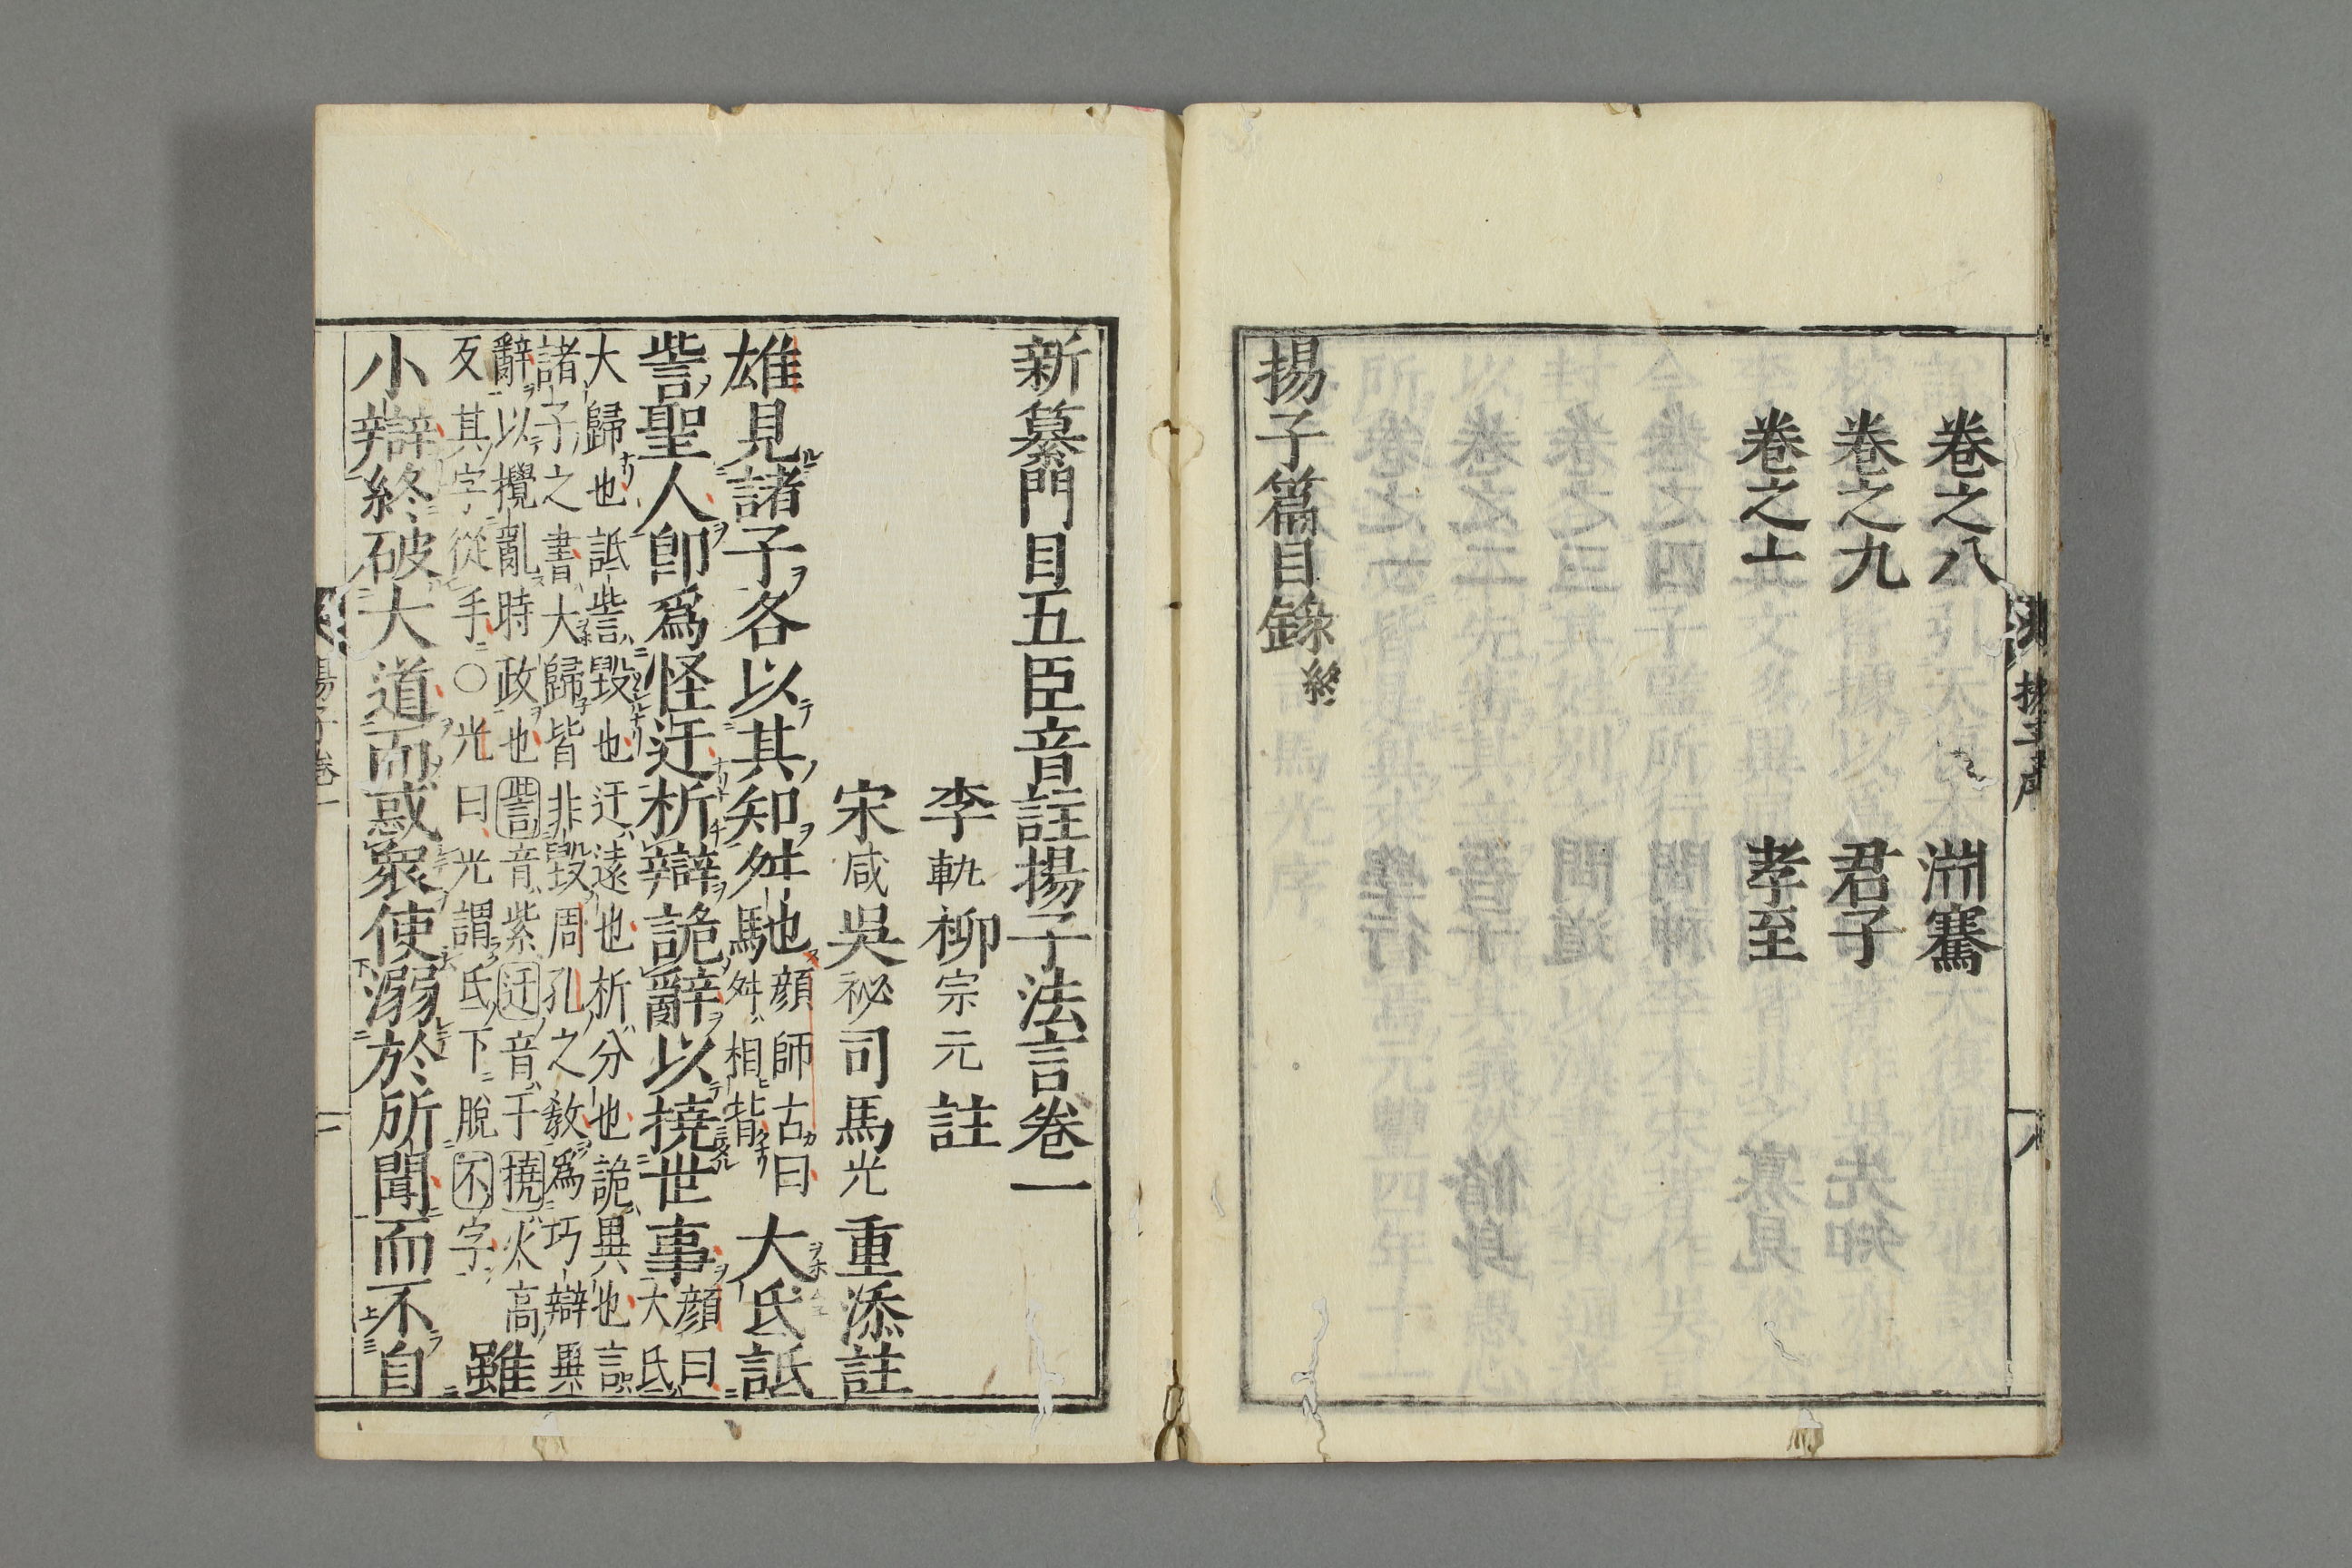 卷之八 淵騫
卷之九 君子
卷之十 孝至
揚子篇目錄終
新纂門目五臣音註揚子法言卷一
李軌柳宗元註
宋咸吳祕司馬光重添註
雄見諸子各以其知舛馳
顔師古曰
舛相背
大氐詆
訾聖人卽爲怪迂析辯詭辭以撓世事
顔曰
大氐
大歸也詆訾毀也迂遠也析分也詭異也言
諸子之書大歸皆非毀周孔之敎爲巧辯異
辭以攪亂時政也訾音紫迂音于撓火高
反其字從手○光曰光謂氐下脫不字
雖
小辯終破大道而惑衆使溺於所聞而不自